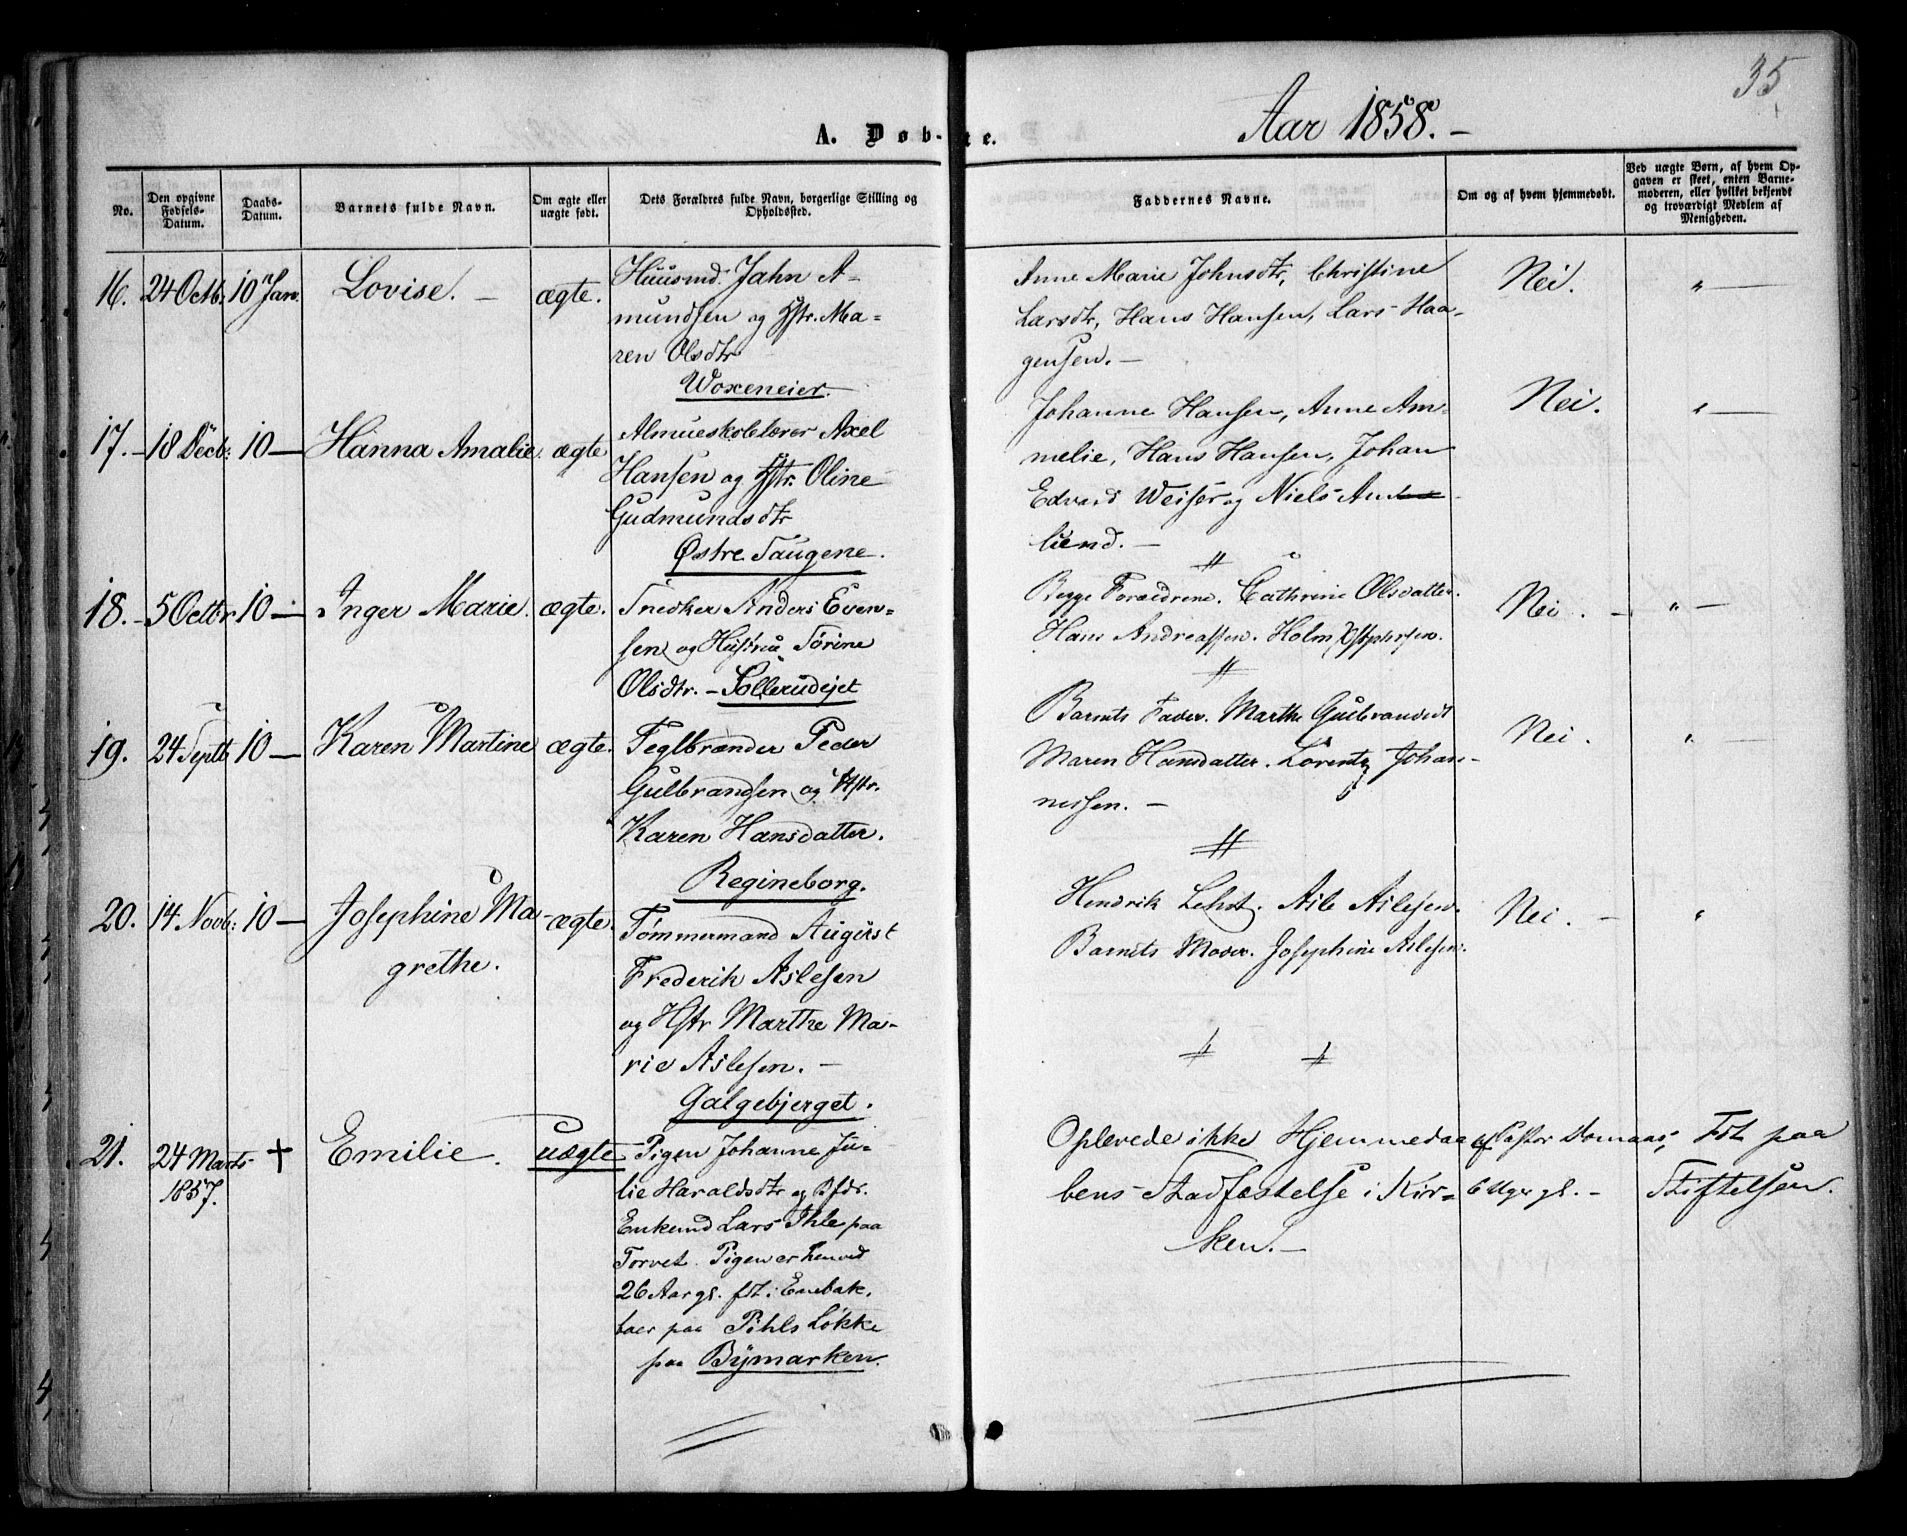 35
A. Døb-te.
Aar 1858.-
No.
Den opgivne Fødsels-Datum.
Daabs-Datum.
Barnets fulde Navn.
Om ægte eller uægte født.
Dets Forældres fulde Navn, borgerlige Stilling og Opholdssted.
Faddernes Navne.
Om og af hvem hjemmedøbt.
Ved uægte Børn, af hvem Opgaven er skeet, enten Barnemoderen, eller hvilket bekjendt og troværdigt Medlem af Menigheden.
16. 24 Octb: 10 Jan. Lovise. - ægte.
Huusmd. Jahn A-
mundsen og Hstr. Ma-
ren Olsdtr
Woxeneier.
Anne Marie Johnsdtr, Christine
Larsdtr, Hans Hansen, Lars Haa-
gensen. -
Nei. "
17. - 18 Decb: 10 - Hanna Amalie. ægte
Almueskolelærer Axel
Hansen og Hstr. Oline
Gudmundsdtr
Østre Taugene.
Johanne Hansen, Anne Am-
melie, Hans Hansen, Johan
Edvard Weiser og Niels An
lund. -
Nei. "
18. - 5 Octbr 10 - Inger Marie. ægte.
Snedker Anders Even-
sen og Hustru Sørine
Olsdtr. - Sollerudejet
Begge Forældrene. Cathrine Olsdatter.
Hans Andreassen. Holm
Nei. - " -
19. 24 Septb 10 - Karen Martine ægte.
Teglbrænder Peder
Gulbrandsen og Hstr.
Karen Hansdatter.
Regineborg.
Barnets Fader. Marthe Gulbrandsdt
Maren Hansdatter. Lorentz Johan-
nessen. -
Nei. "
20. 14 Novb: 10 - Josephine Ma-
grethe. ægte.
Tømmermand August
Frederik Aslesen
og Hstr Marthe Ma-
rie Aslesen. -
Galgebjerget.
Hendrik Asle Aslesen.
Barnets Moder. Josephine Aslesen.
Nei. - "
21. 24 Marts + Emilie. uægte
1857.
Pigen Johanne Ju-
lie Haraldsdtr og Bfdr.
Enkemd Lars Ihle paa
Torvet. Pigen er henved
26 Aar gl. fdt i Enebak,
boer paa Pihls Løkke
paa Bymarken.
Oplevede ikke Hjemmedaa-
bens Stadfæstelse i Kir-
ken. -
af Pastor
6 Uger gl. -
Fdt paa
Stiftelsen.